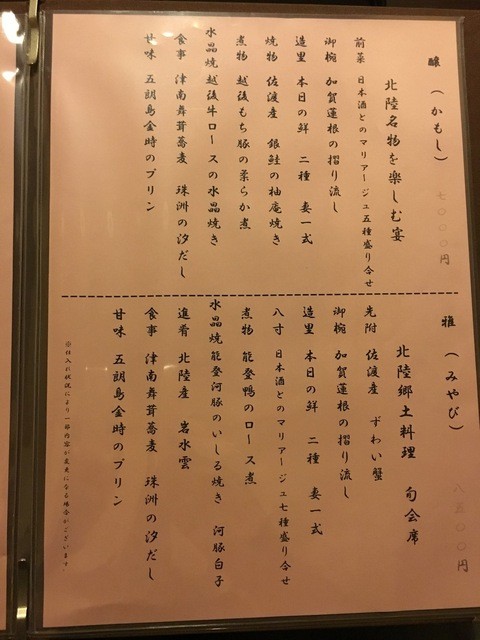 醸 (かもし) 七〇〇〇円
北陸名物を楽しむ宴
前菜 日本酒とのマリアージュ五種盛り合せ
御椀 加賀蓮根の摺り流し
造里 本日の鮮 二種 妻一式
焼物 佐渡産 銀鮭の柚庵焼き
煮物 越後もち豚の柔らか煮
水晶焼 越後牛ロースの水晶焼き
食事 津南舞茸蕎麦 珠洲の汐だし
甘味 五郎島金時のプリン
雅 (みやび) 八五〇〇円
北陸郷土料理 旬会席
先附 佐渡産 ずわい蟹
御椀 加賀蓮根の摺り流し
造里 本日の鮮 二種 妻一式
八寸 日本酒とのマリアージュ七種盛り合せ
煮物 能登鴨のロース煮
水晶焼 能登河豚のいしる焼き 河豚白子
進肴 北陸産 岩水雲
食事 津南舞茸蕎麦 珠洲の汐だし
甘味 五郎島金時のプリン
※仕入れ状況により一部内容が変更になる場合がございます。